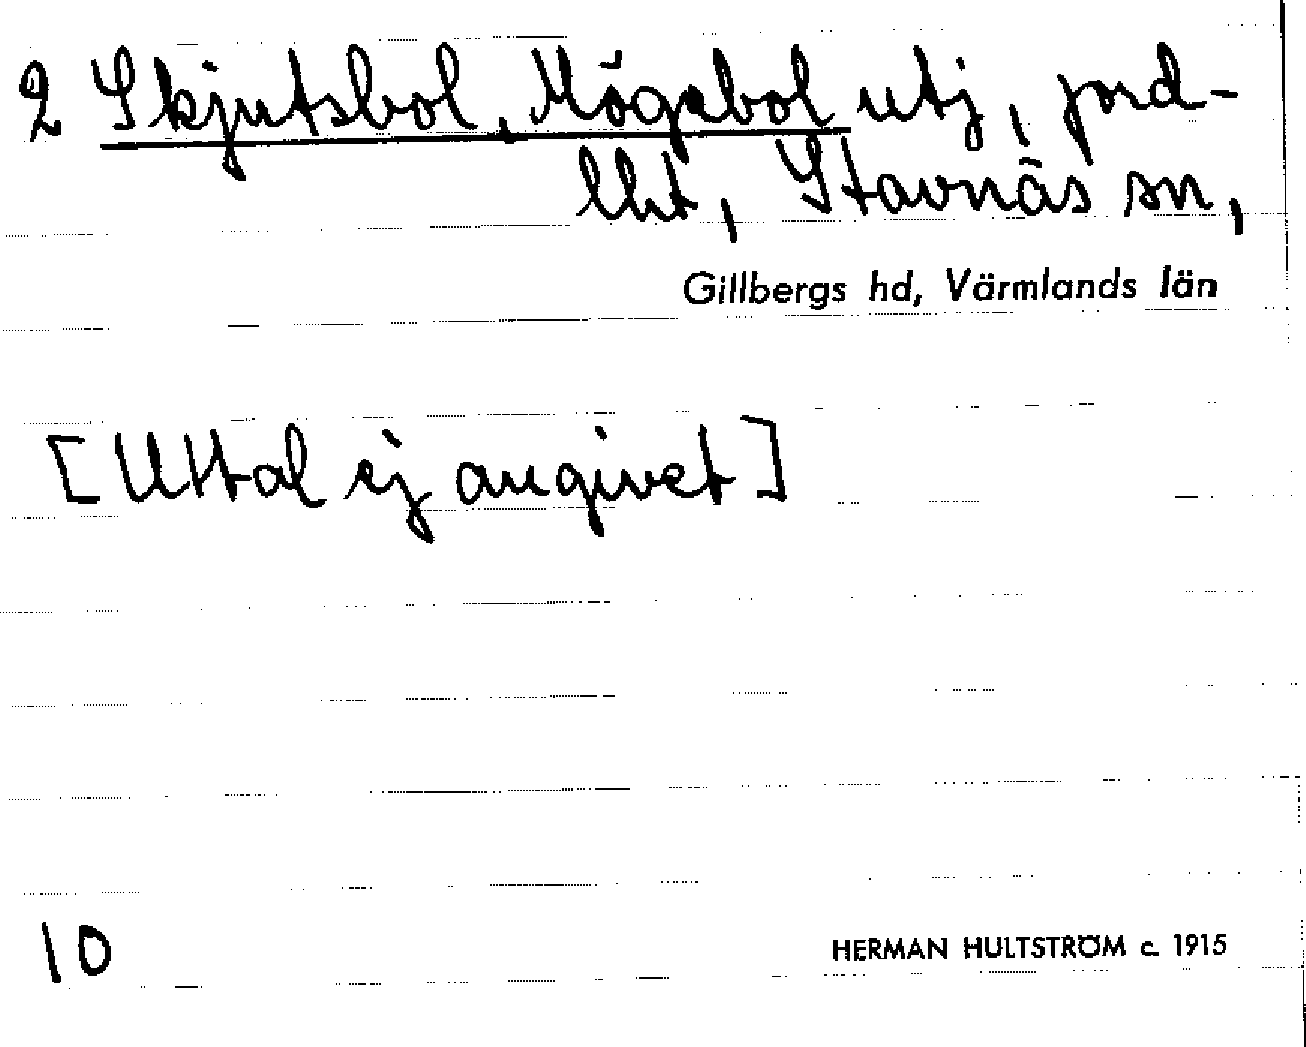 2 Skjutsbol, Högsbol utj, jord-
lht, Stavnäs sn,
Gillbergs hd, Värmlands län
[Uttal ej angivet]
10
HERMAN HULTSTRÖM c. 1915